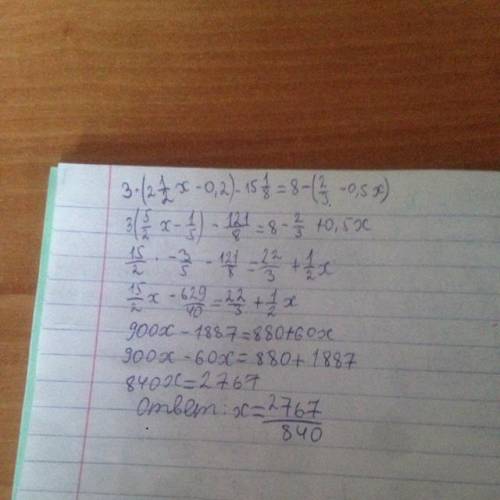 3·(2 1/2 x - 0,2) - 15 1/8 = 8 - (2/3 - 0,5x)
3(5/2 x - 1/5) - 121/8 = 8 - 2/3 + 0,5x
15/2 · -3/5 - 121/8 = 22/3 + 1/2 x
15/2 x - 629/40 = 22/3 + 1/2 x
900x - 1887 = 880 + 60x
900x - 60x = 880 + 1887
840x = 2767
Ответ: x = 2767/840